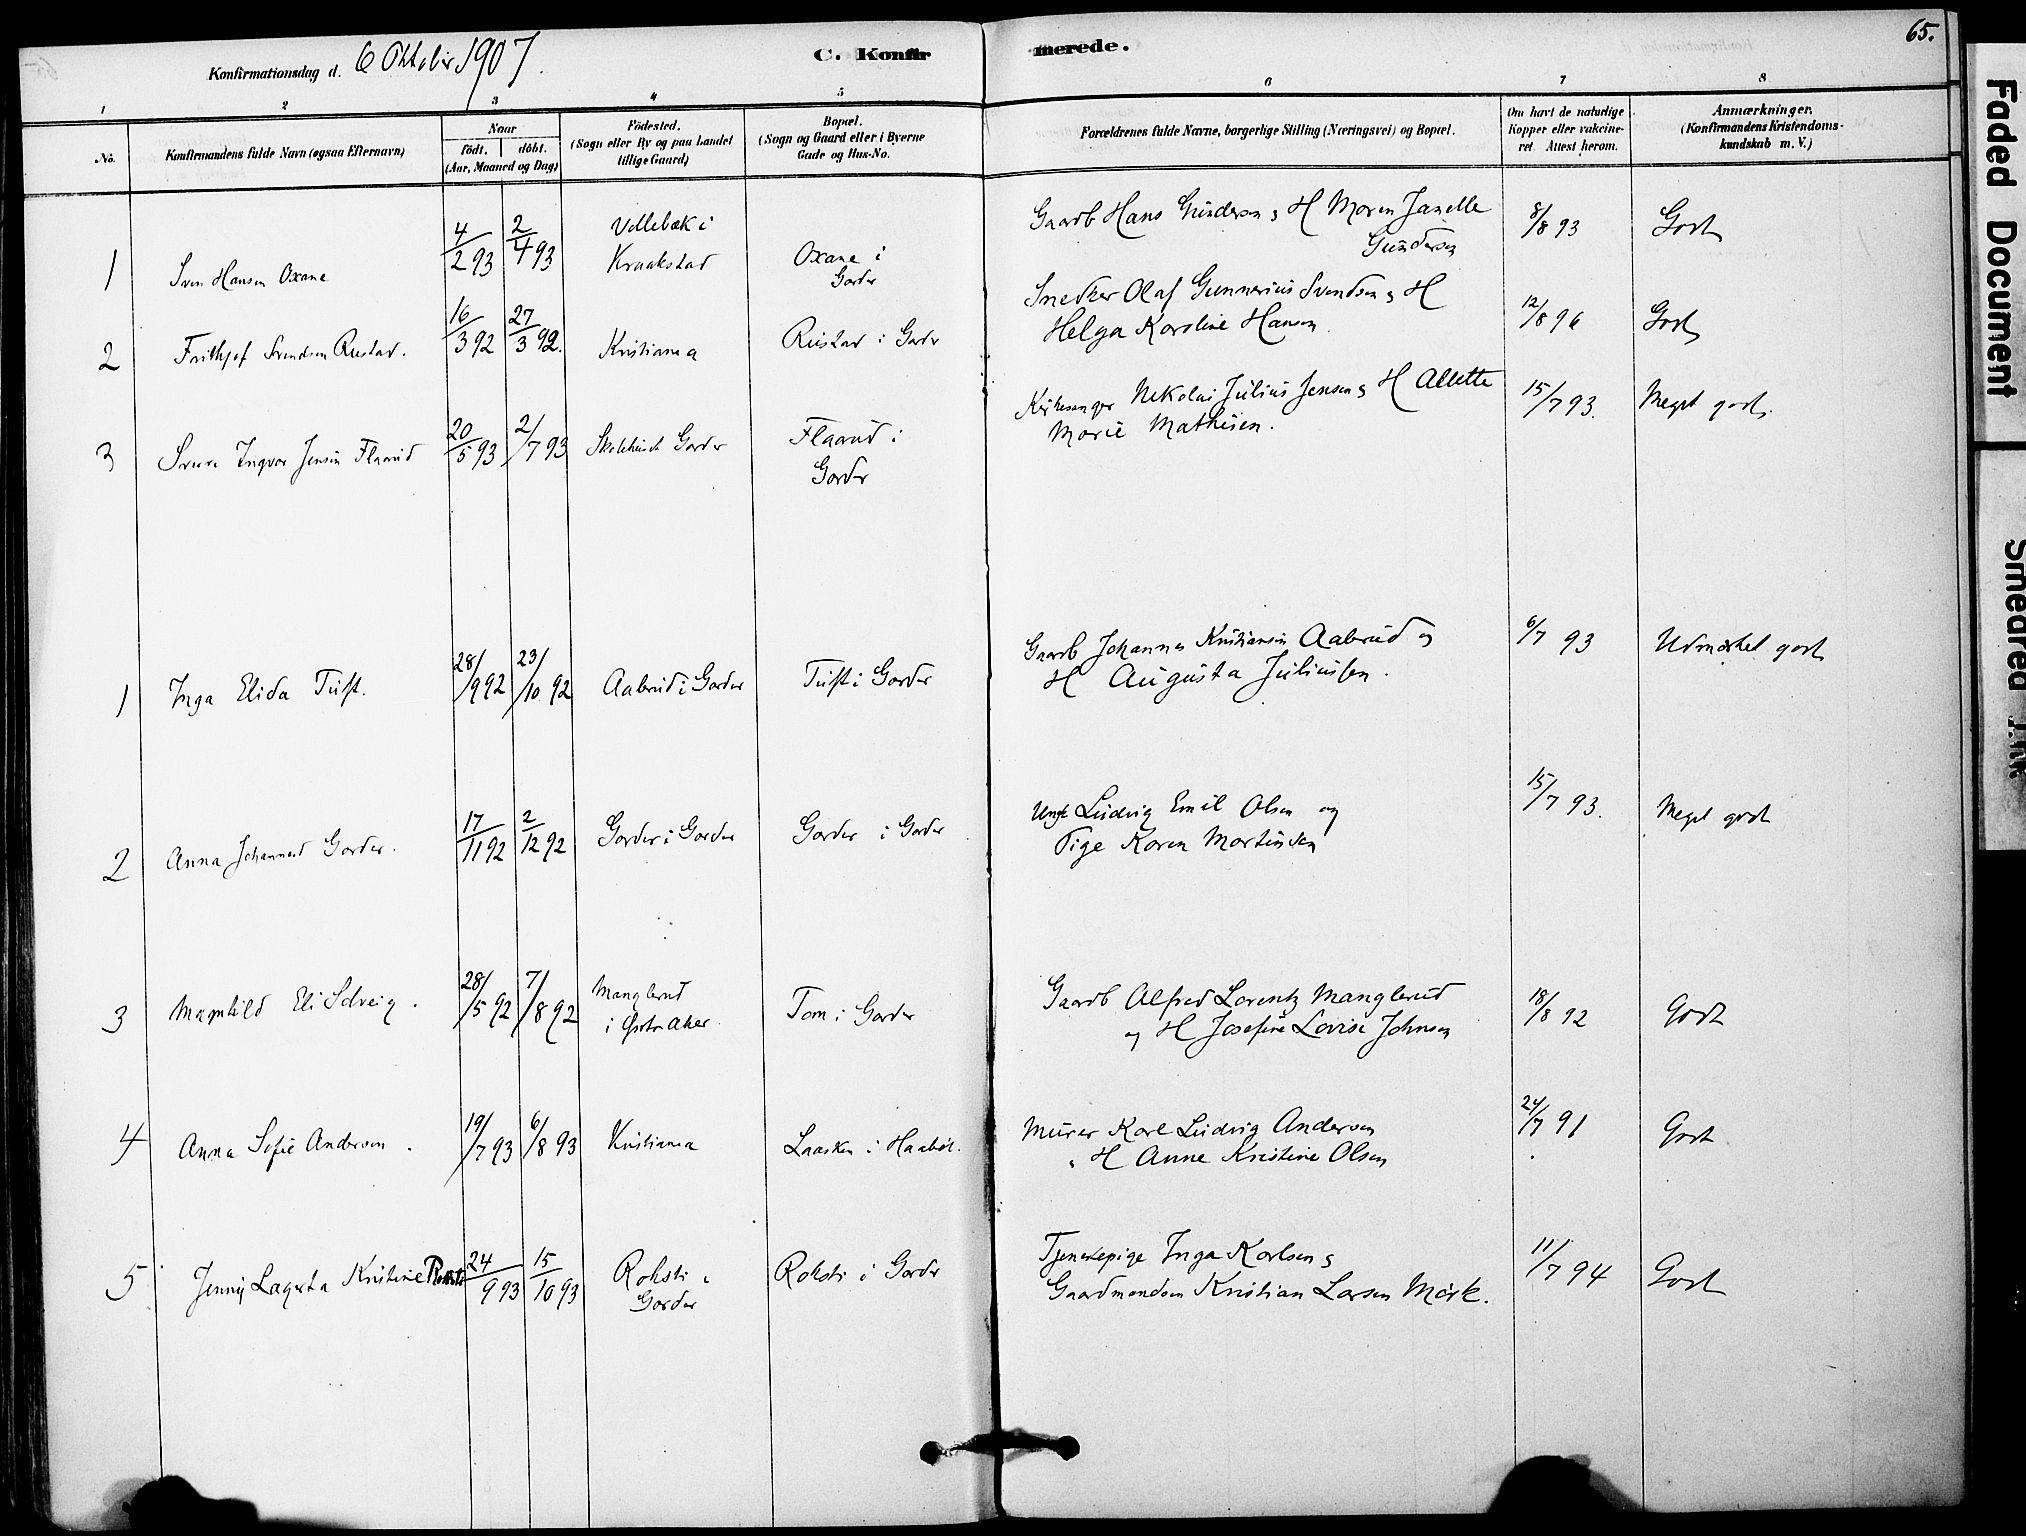 65.
Konfirmationsdag d. 6 Oktober 1907.
C. Konfirmerede.
1 2 3 4 5 6 7 8
No.
Konfirmandens fulde Navn (ogsaa Efternavn)
Naar
födt. döbt.
(Aar, Maaned og Dag)
Födested.
(Sogn eller By og paa Landet
tillige Gaard)
Bopæl.
(Sogn og Gaard eller i Byerne
Gade og Hus-No.
Forældrenes fulde Navne, borgerlige Stilling (Næringsvei) og Bopæl.
Om havt de naturlige
Kopper eller vakcine-
ret. Attest herom.
Anmærkninger.
(Konfirmandens Kristendoms-
kundskab m. V.)
1 Sven Hansen Oxane 4/2 93 2/4 93
Vollebæk i
Kraakstad
Oxane i
Garder
Gaardb Hans Gundersen og H Maren Janette
Gundersen
8/8 93 Godt
2 Frithjof Svendsen Rustad. 16/3 92 27/3 92. Kristiania Rustad i Garder
Snedker Olaf Gunnerius Svendsen og H
Helga Karoline Hansen.
12/8 96 Godt
3 Sverre Ingvar Jensen Flaarud 20/5 93 2/7 93 Skolehuset Garder
Flaarud i
Garder
Kirkesanger Nikolai Julius Jensen og H Alette
Marie Mathisen.
15/7 93. Meget godt.
1 Inga Elida Tuft. 28/9 92 23/10 92 Aaberud i Garder Tuft i Garder
Gaardb Johannes Kristiansen Aaberud og
H Augusta Juliussen.
6/7 93 Udmærket godt
2 Anna Johannes Garder. 17/11 92 2/12 92 Garder i Garder Garder i Garder
Ungk Ludvig Emil Olsen og
Pige Karen Martinsen
15/7 93. Meget godt
3 Magnhild Eli Solveig. 28/5 92 7/8 92
Manglerud
i Østre Aker.
Tom i Garder
Gaardb Alfred Lorentz Manglerud
og H Josefine Lovise Johnsen
18/8 92 Godt
4 Anna Sofie Andersen. 19/7 93 6/8 93 Kristiania Laasken i Haabøl.
Murer Karl Ludvig Andersen
" H Anne Kristine Olsen
24/7 91 Godt
5 Jenny Lagerta Kristine Roksti 24/9 93 15/10 93
Roksti i
Garder
Roksti i Garder
Tjenestepige Inga Karlsen og
Gaardmandsøn Kristian Larsen Mørk.
11/7 94 Godt
Faded Document
Smeared Ink